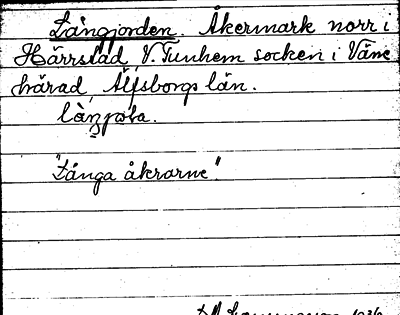 Långjorden. Åkermark norr i
Härrstad, V. Tunhem socken i Väne
härad, Älfsborgs län.
"Långa åkrarne"
1936